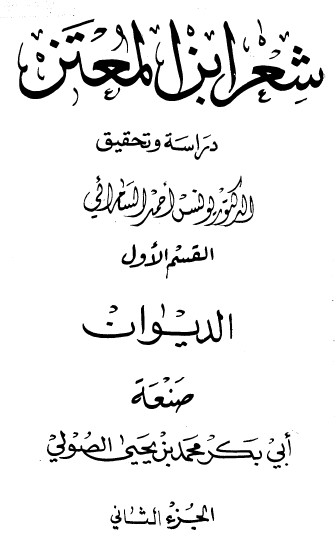 شعر ابن المعتز
دراسة وتحقيق
الدكتور يونس أحمد السامرائي
القسم الأول
الديوان
صنعة
أبي بكر محمد بن يحيى الصولي
الجزء الثاني